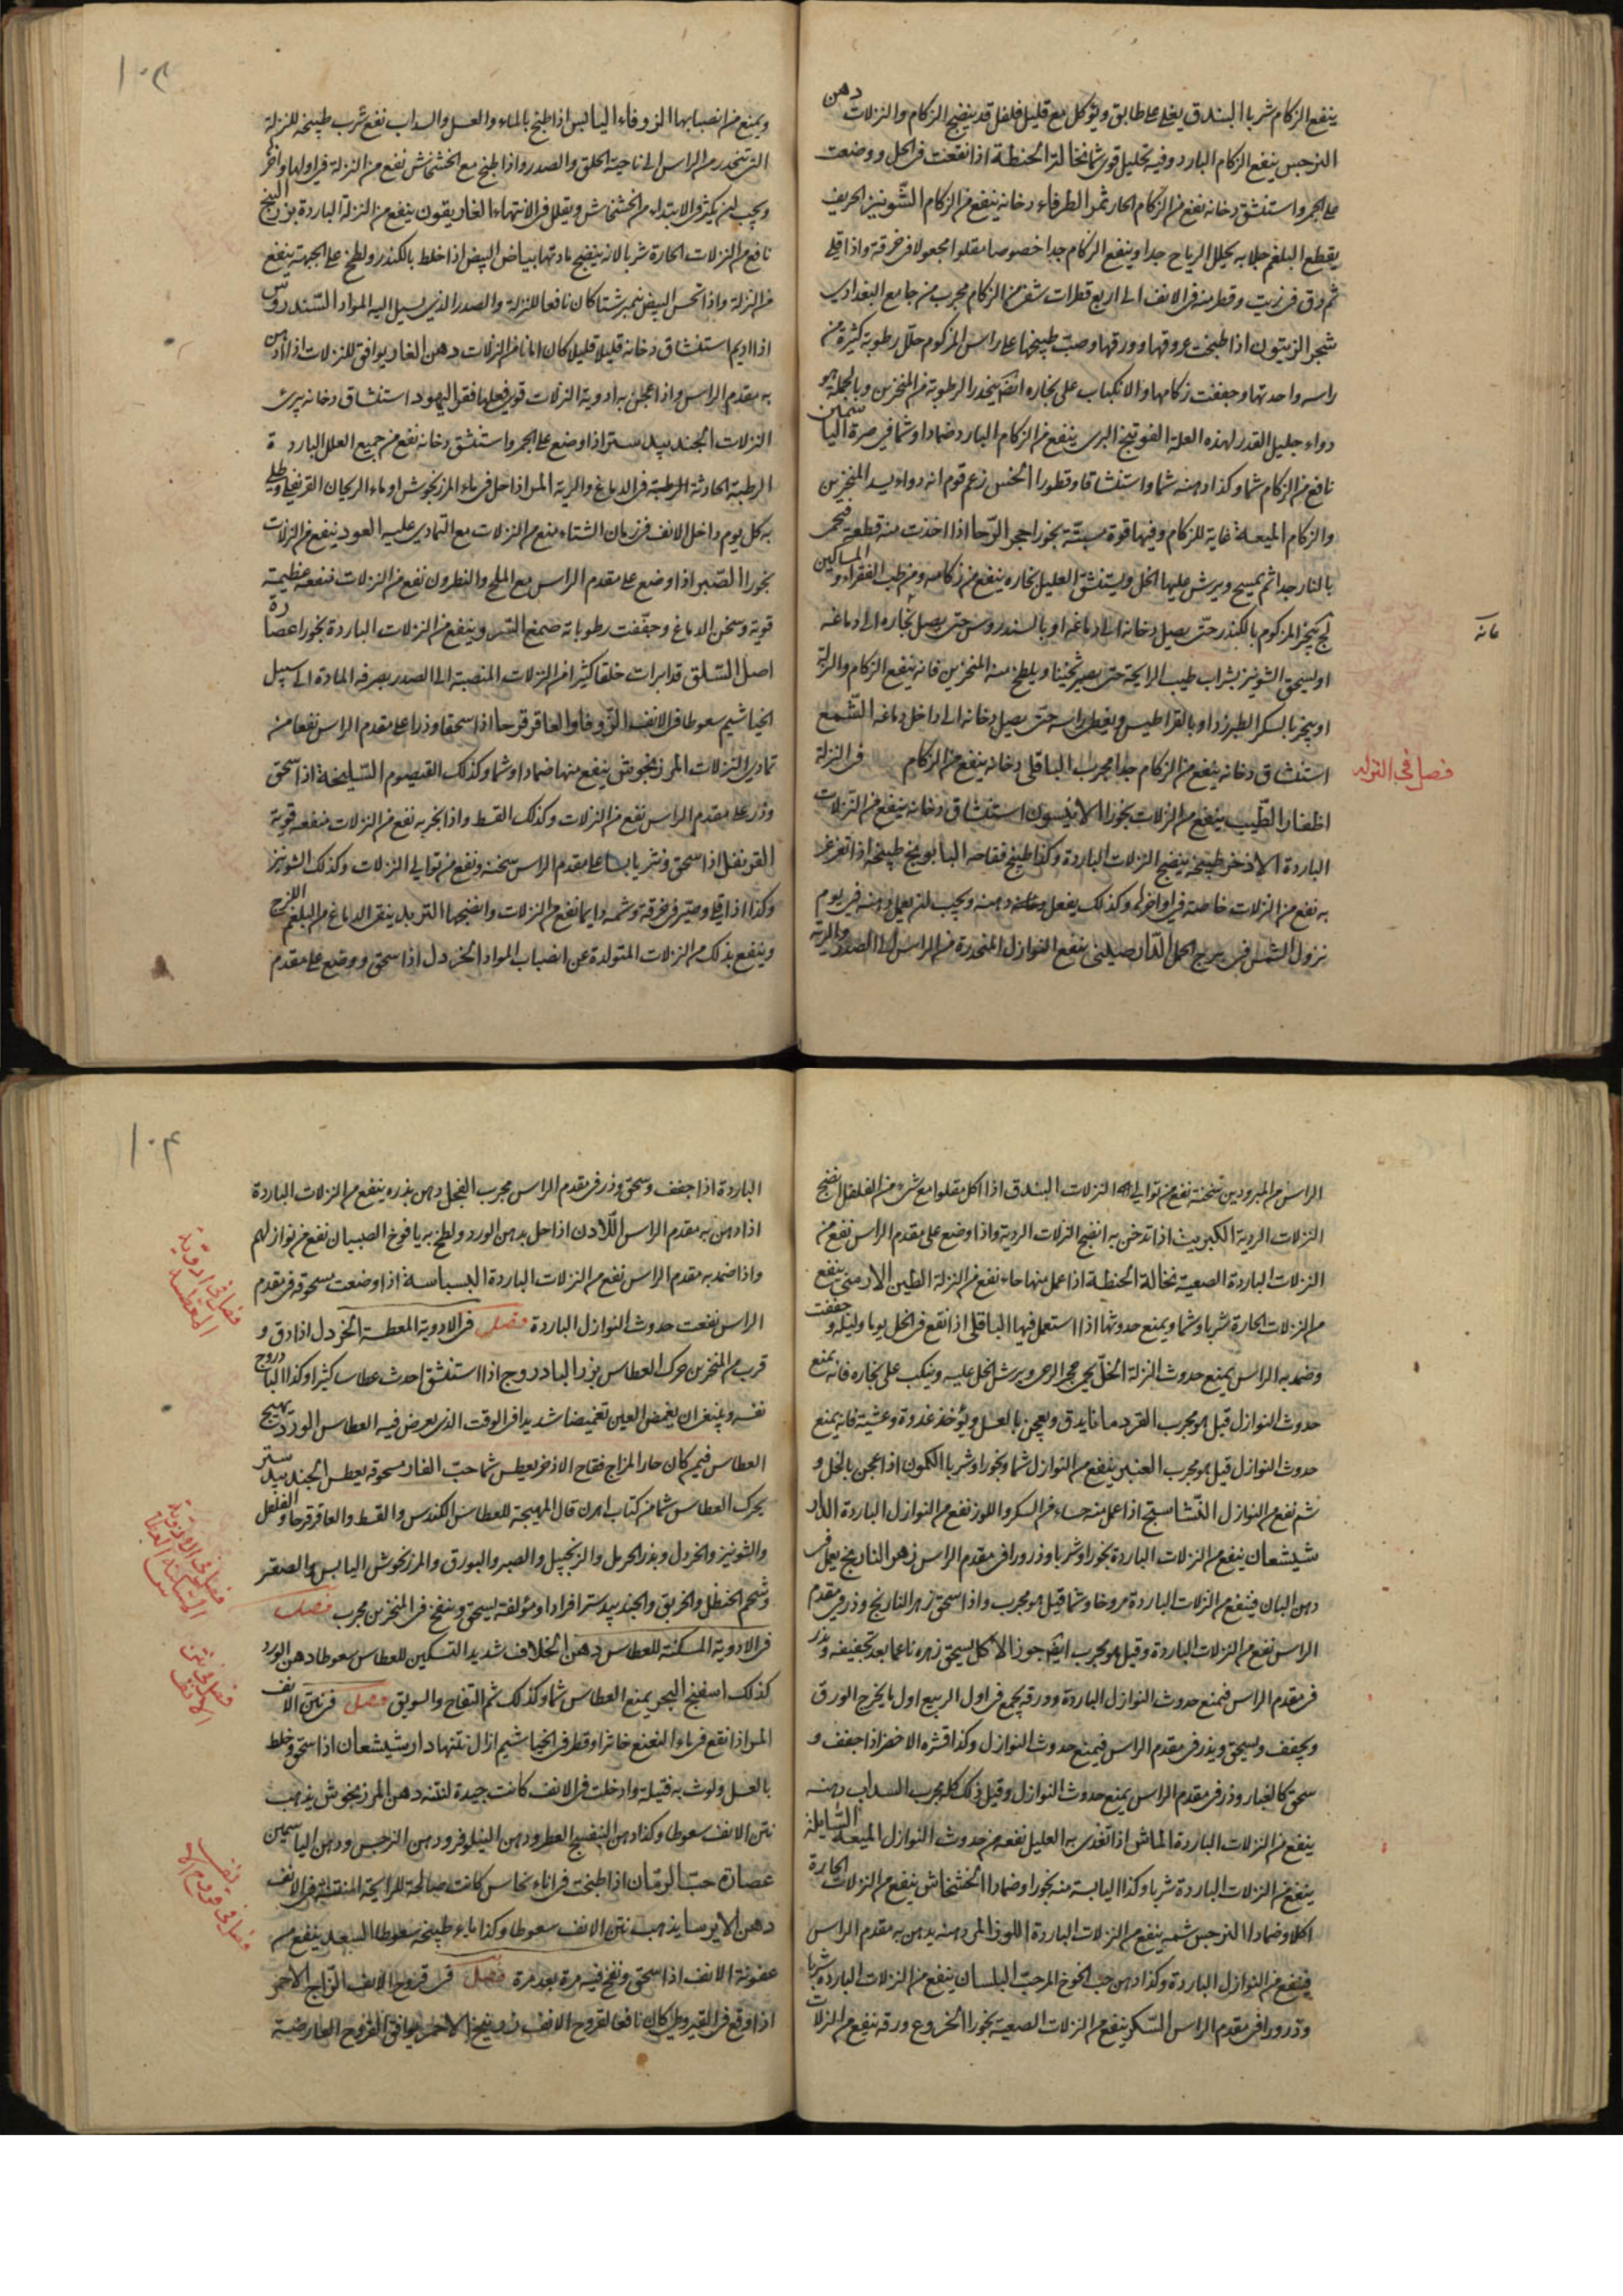 ينفع الزكام شربا البندق يقلى على طابق ويؤكل مع قليل فلفل قد ينضج الزكام والنزلات دهن
النرجس ينفع الزكام البارد وفيه تحليل قوى شما نخالة الحنطة اذا نقعت فى الخل ووضعت
على الجمر واستنشق دخانه نفع من الزكام الحار ثمر الطرفاء دخانه ينفع من الزكام الشونيز الحريف
يقطع البلغم جلاء يحلل الرياح جدا وينفع الزكام جدا خصوصا مقلوا مجعولا فى خرقة واذا قلى
ثم دق فى زيت وقطر منه فى الانف الى اربع قطرات شفى من الزكام مجرب من جامع البغدادى
شجر الزيتون اذا طبخت عروقها وورقها وصب طبيخها على راس المزكوم حلل رطوبة كثيرة من
راسه واحدتها وجففت زكامها والانكباب على بخاره ايضا يحدر الرطوبة من المنخرين وبالجملة هو
دواء جليل القدر لهذه العلة الفوتنج البرى ينفع من الزكام البارد ضمادا وشما فى صرة الياسمين
نافع من الزكام شما وكذا دهنه شما واستنشاقا وقطورا الخس زعم قوم انه دواء يسد المنخرين
والزكام الميعة غاية للزكام وفيها قوة مسبتة بخورا حجر الرحا اذا اخذت منه قطعة فتحمى
بالنار جدا ثم يمسح ويرش عليها الخل ويستنشق العليل بخاره ينفع من زكامه ومن طب الفقراء والمساكين
يبخر المزكوم بالكندر حتى يصل دخانه الى دماغه او بالسندروس حتى يصل بخاره الى دماغه
او يسحق الشونيز بشراب طيب الرايحة حتى يصير ثخينا ويلطخ منه المنخرين فانه ينفع الزكام والنزلة
او يبخر بالسكر الطبرزد او بالقراطيس ويغطى راسه حتى يصل دخانه الى داخل دماغه الشمع
استنشاق دخانه ينفع من الزكام جدا مجرب الباقلى دخانه ينفع من الزكام فى النزلة
اظفار الطيب ينفع من النزلات بخورا الانيسون استنشاق دخانه ينفع من النزلات
الباردة الاذخر طبيخه ينضج النزلات الباردة وكذا طبيخ فقاحه البابونج طبيخه اذا تغرغر
به نفع من النزلات خاصة فى اواخرها وكذلك يفعل دهنه ويجب ان يعمل دهنه فى يوم
نزول الشمس فى برج الحمل الدارصينى ينفع النوازل المنحدرة من الراس الى الصدر والرئة
فصل فى النزلة
ويمنع من انصبابها الزوفاء اليابس اذا طبخ بالماء والعسل والسداب نفع شرب طبيخه للنزلة
التى تنحدر من الراس الى ناحية الحلق والصدر واذا طبخ مع الخشخاش نفع من النزلة فى اولها واخرها
ويجب ان يكثر فى الابتداء من الخشخاش ويقلل فى الانتهاء الغاريقون ينفع من النزلة الباردة بزر البنج
نافع من النزلات الحارة شربا لانه ينضج مادتها بياض البيض اذا خلط بالكندر ولطخ على الجبهة ينفع
من النزلة واذا تحسى البيض نيمبرشتا كان نافعا للنزلة والصدر الذى يسيل اليه المواد السندروس
اذا اديم استنشاق دخانه قليلا قليلا كان امانا من النزلات دهن الغار يوافق للنزلات اذا ادهن
به مقدم الراس واذا عجن به ادوية النزلات قوى فعلها فقر اليهود استنشاق دخانه يبرئ
النزلات الجندبيدستر اذا وضع على الجمر واستنشق دخانه نفع من جميع العلل الباردة
الرطبة الحادثة الرطبة فى الدماغ والرية المر اذا حل فى ماء المرزنجوش او ماء الريحان القرنفلى وطلى
به كل يوم داخل الانف فى زمان الشتاء منع من النزلات مع التمادى عليه العود ينفع من النزلات
بخورا الصبر اذا وضع على مقدم الراس مع الملح والنطرون نفع من النزلات منفعة عظيمة
قوية وسخن الدماغ وجففت رطوباته صمغ السرو ينفع من النزلات الباردة بخورا عصارة
اصل السلق قد ابرات خلقا كثيرا من النزلات المنصبة الى الصدر بصرفه المادة الى سبيل
الخياشيم سعوطا فى الانف الزوفا والعاقرقرحا اذا سحقا وذرا على مقدم الراس نفعا من
تمادى النزلات المرزنجوش ينفع منها ضمادا وشما وكذلك القيصوم السليخة اذا سحق
وذر على مقدم الراس نفع من النزلات وكذلك القسط واذا بخر به نفع من النزلات منفعة قوية
القرنفل اذا سحق ونثر يابسا على مقدم الراس سخنه ونفع من توالى النزلات وكذلك الشونيز
وكذا اذا قلى وصير فى خرقة وشمه دايما نفع من النزلات وانضجها التربد ينقى الدماغ من البلغم اللزج
وينفع بذلك من النزلات المتولدة عن انصباب المواد الخردل اذا سحق ووضع على مقدم
الراس من المبرودين سخنه نفع من توالى النزلات البندق اذا اكل مقلوا مع شىء من الفلفل انضج
النزلات الردية الكبريت اذا تدخن به انضج النزلات الردية واذا وضع على مقدم الراس نفع من
النزلات الباردة الصعبة نخالة الحنطة اذا عمل منها حساء نفع من النزلة الطين الارمنى ينفع
من النزلات الحارة شربا وشما ويمنع حدوثها اذا استعمل فيها الباقلى اذا نقع فى الخل يوما وليلة وجففت
وضمد به الراس يمنع حدوث النزلة الخل يحمى حجر الرحى ويرش الخل عليه وينكب على بخاره فانه يمنع
حدوث النوازل قيل هو مجرب القردمانا يدق ويعجن بالعسل ويؤخذ غدوة وعشية فانه يمنع
حدوث النوازل قيل هو مجرب العنبر ينفع من النوازل شما وبخورا وشربا الكمون اذا عجن بالخل و
شم نفع من النوازل النشاستج اذا عمل منه حساء من السكر واللوز نفع من النوازل الباردة الدار
شيشعان ينفع من النزلات الباردة بخورا وشربا وذرورا فى مقدم الراس زهر النارنج يعمل فى
دهن البان فينفع من النزلات الباردة مروخا وشما قيل هو مجرب واذا سحق زهر النارنج وذر فى مقدم
الراس نفع من النزلات الباردة وقيل هو مجرب ايضا جوز الاكل يسحق زهره ناعما بعد تجفيفه وذر
فى مقدم الراس فيمنع حدوث النوازل الباردة وورقه يجمع فى اول الربيع اول ما يخرج الورق
ويجفف ويسحق ويذر فى مقدم الراس فيمنع حدوث النوازل وكذا قشره الاخضر اذا جفف و
سحق كالغبار وذر فى مقدم الراس يمنع حدوث النوازل وقيل ذلك كله مجرب السداب دهنه
ينفع من النزلات الباردة الماش اذا تغذى به العليل نفعه من حدوث النوازل الميعة السايلة
ينفع من النزلات الباردة شربا وكذا اليابسة منه بخورا وضمادا الخشخاش ينفع من النزلات الحارة
اكلا وضمادا النرجس شمه ينفع من النزلات الباردة اللوز المر دهنه يدهن به مقدم الراس
فينفع من النوازل الباردة وكذا دهن حب الخوخ المر حب البلسان ينفع من النزلات الباردة شربا
وذرورا فى مقدم الراس السكر ينفع من النزلات الصعبة بخورا الخروع ورقه ينفع من النزلات
الباردة اذا جفف وسحق وذر فى مقدم الراس مجرب الفجل دهن بذره ينفع من النزلات الباردة
اذا دهن به مقدم الراس اللادن اذا حل بدهن الورد ولطخ به يافوخ الصبيان نفع من نوازلهم
واذا ضمد به مقدم الراس نفع من النزلات الباردة البسباسة اذا وضعت مسحوقة فى مقدم
الراس نفعت حدوث النوازل الباردة فصل فى الادوية المعطسة الخردل اذا دق و
قرب من المنخرين حرك العطاس بزر الباذروج اذا استنشق احدث عطاسا كثيرا وكذا الباذروج
نفسه وينبغى ان يغمض العين تغميضا شديدا فى الوقت الذى يعرض فيه العطاس الورد يهيج
العطاس فيمن كان حار المزاج فقاح الاذخر يعطس شما حب الغار مسحوقه يعطس الجندبيدستر
يحرك العطاس شما من كتاب اهرن قال المهيجة للعطاس الكندس والقسط والعاقرقرحا والفلفل
والشونيز والخردل وبذر الحرمل والزنجبيل والصبر والبورق والمرزنجوش اليابس والصعتر
وشحم الحنظل والخربق والجندبيدستر افرادا ومؤلفة يسحق وينفخ فى المنخرين مجرب فصل
فى الادوية المسكنة للعطاس دهن الخلاف شديد التسكين للعطاس سعوطا دهن الورد
كذلك اسفنج البحر يمنع العطاس شما وكذلك شم التفاح والسويق فصل فى نتن الانف
المر اذا نقع فى ماء النعنع خاثرا وقطر فى الخياشيم ازال نتنها دارشيشعان اذا سحق وخلط
بالعسل ولوث به فتيلة وادخلت فى الانف كانت جيدة لنتنه دهن المرزنجوش يذهب
نتن الانف سعوطا وكذا دهن البنفسج العطر ودهن النيلوفر ودهن النرجس ودهن الياسمين
عصارة حب الرمان اذا طبخت فى اناء نحاس كانت صالحة للرايحة المنتنة فى الانف
دهن الايرسا يذهب نتن الانف سعوطا وكذا ماء طبيخه سعوطا السعد ينفع من
عفونة الانف اذا سحق ونفخ فيه مرة بعد مرة فصل فى قروح الانف الزاج الاحمر
اذا وقع فى القيروطى كان نافعا لقروح الانف الزرنيخ الاحمر يوافق القروح العارضة
فصل فى ادوية المعطسة
فصل فى الادوية المسكنة العطاس
فصل فى نتن الانف
فصل فى قروح الانف